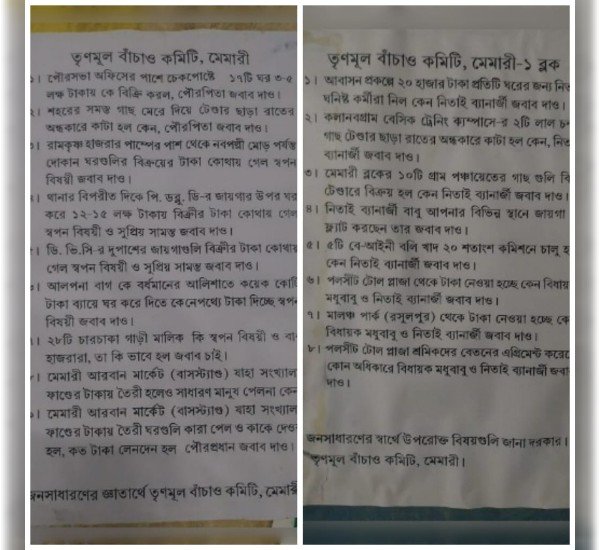 তৃণমূল বাঁচাও কমিটি, মেমারী
১। পৌরসভা অফিসের পাশে চেকপোষ্টে ১৭টি ঘর ৩-৫
লক্ষ টাকায় কে বিক্রি করল, পৌরপিতা জবাব দাও।
২। শহরের সমস্ত গাছ মেরে দিয়ে টেণ্ডার ছাড়া রাতের
অন্ধকারে কাটা হল কেন, পৌরপিতা জবাব দাও।
৩। রামকৃষ্ণ হাজরার পাম্পের পাশ থেকে নবপল্লী মোড় পর্যন্ত
দোকান ঘরগুলির বিক্রয়ের টাকা কোথায় গেল স্বপন
বিষয়ী জবাব দাও।
৪। থানার বিপরীত দিকে পি. ডব্লু. ডি-র জায়গার উপর ঘর
করে ১২-১৫ লক্ষ টাকায় বিক্রীর টাকা কোথায় গেল
স্বপন বিষয়ী ও সুপ্রিয় সামন্ত জবাব দাও।
ডি. ভি.সি-র দুপাশের জায়গাগুলি বিক্রীর টাকা কোথায়
গেল স্বপন বিষয়ী ও সুপ্রিয় সামন্ত জবাব দাও।
আলপনা বাগ কে বর্ধমানের আলিশাতে কয়েক কোটি
টাকা ব্যায়ে ঘর করে দিতে কেনেপথ্যে টাকা দিচ্ছে স্বপন
বিষয়ী জবাব দাও।
২৮টি চারচাকা গাড়ী মালিক কি স্বপন বিষয়ী ও
হাজরারা, তা কি ভাবে হল জবাব চাই।
মেমারী আরবান মার্কেট (বাসস্ট্যাণ্ড) যাহা সংখ্যাল
ফাণ্ডের টাকায় তৈরী হলেও সাধারণ মানুষ পেলনা কেন
মেমারী আরবান মার্কেট (বাসস্ট্যাণ্ড) যাহা সংখ্যাল
ফাণ্ডের টাকায় তৈরী ঘরগুলি কারা পেল ও কাকে দেওয়
হল, কত টাকা লেনদেন হল পৌরপ্রধান জবাব দাও।
জনসাধারণের জ্ঞাতার্থে তৃণমূল বাঁচাও কমিটি, মেমারী
তৃণমূল বাঁচাও কমিটি, মেমারী-১ ব্লক
১। আবাসন প্রকল্পে ২০ হাজার টাকা প্রতিটি ঘরের জন্য নিত
ঘনিষ্ট কর্মীরা নিল কেন নিতাই ব্যানার্জী জবাব দাও।
২। কলানবগ্রাম বেসিক ট্রেনিং ক্যাম্পাসে-র ২টি লাল চ
গাছ টেণ্ডার ছাড়া রাতের অন্ধকারে কাটা হল কেন, নিত
ব্যানার্জী জবাব দাও।
৩। মেমারী ব্লকের ১০টি গ্রাম পঞ্চায়েতের গাছ গুলি বি
টেণ্ডারে বিক্রয় হল কেন নিতাই ব্যানার্জী জবাব দাও।
৪। নিতাই ব্যানার্জী বাবু আপনার বিভিন্ন স্থানে জায়গা
ফ্ল্যাট করছেন তার জবাব দাও।
৫। ৫টি বে-আইনী বলি খাদ ২০ শতাংশ কমিশনে চালু হ
কেন নিতাই ব্যানার্জী জবাব দাও।
৬। পলসীট টোল প্লাজা থেকে টাকা নেওয়া হচ্ছে কেন বিধায়
মধুবাবু ও নিতাই ব্যানার্জী জবাব দাও।
৭। মালঞ্চ পার্ক (রসুলপুর) থেকে টাকা নেওয়া হচ্ছে কে
বিধায়ক মধুবাবু ও নিতাই ব্যানার্জী জবাব দাও।
৮। পলসীট টোল প্লাজা শ্রমিকদের বেতনের এগ্রিমেন্ট করেছে
কোন অধিকারে বিধায়ক মধুবাবু ও নিতাই ব্যানার্জী জবা
দাও।
জনসাধারণের স্বার্থে উপরোক্ত বিষয়গুলি জানা দরকার।
তৃণমূল বাঁচাও কমিটি, মেমারী।